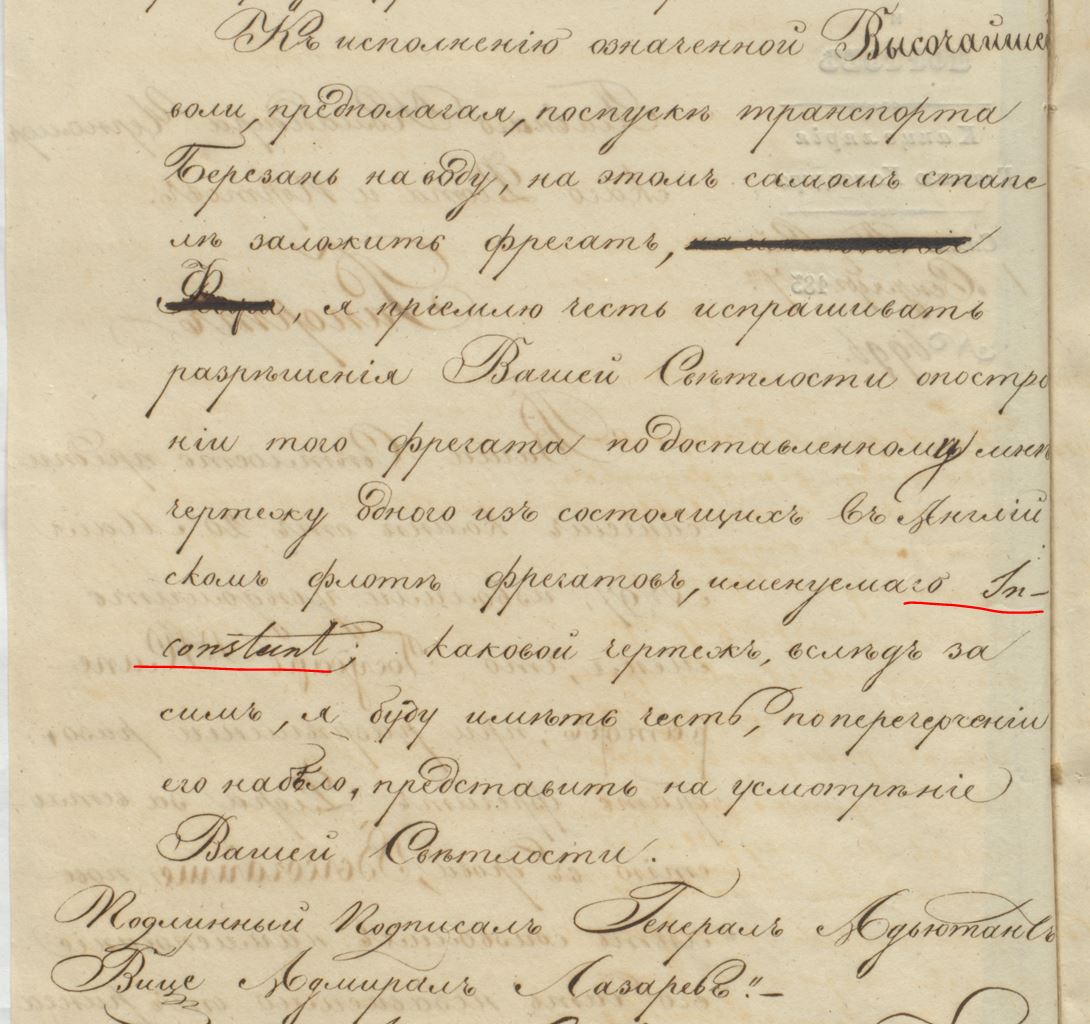 Къ исполненію означенной Высочайшей
воли, предполагая, поспускѣ транспорта
Березань на воду, на этомъ самомъ стапе
лѣ заложить фрегатъ,
, я пріемлю честь испрашивать
разрѣшенія Вашей Свѣтлости опостро
ніи того фрегата по доставленному мнѣ
чертежу одного изъ состоящихъ въ Англій
скомъ флотѣ фрегатовъ, именуемаго In-
constant; каковой чертежъ, вслѣдъ за
симъ, я буду имѣть честь, по перечерченіи
его набѣло, представить на усмотрѣніе
Вашей Свѣтлости.
Подлинный Подписалъ Генералъ Адъютантъ
Вице Адмиралъ Лазаревъ."-